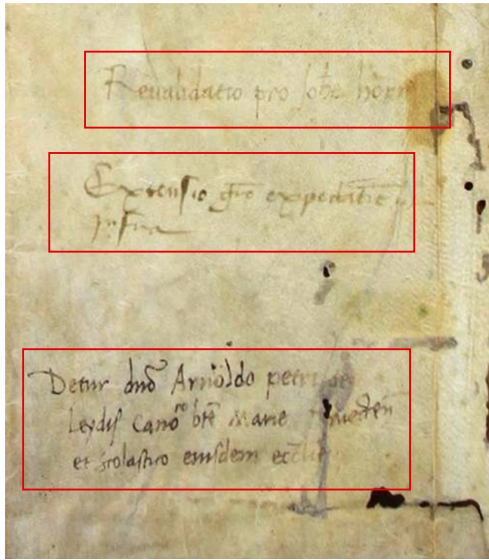 Reualidatio pro Joh̅e hop
Extensio gr̅o expedit̅
infra
Detur dn̅o Arnoldo petri de
Leydis cano^co bt̅e Marie
et scolastico eiusdem eccl̅ie